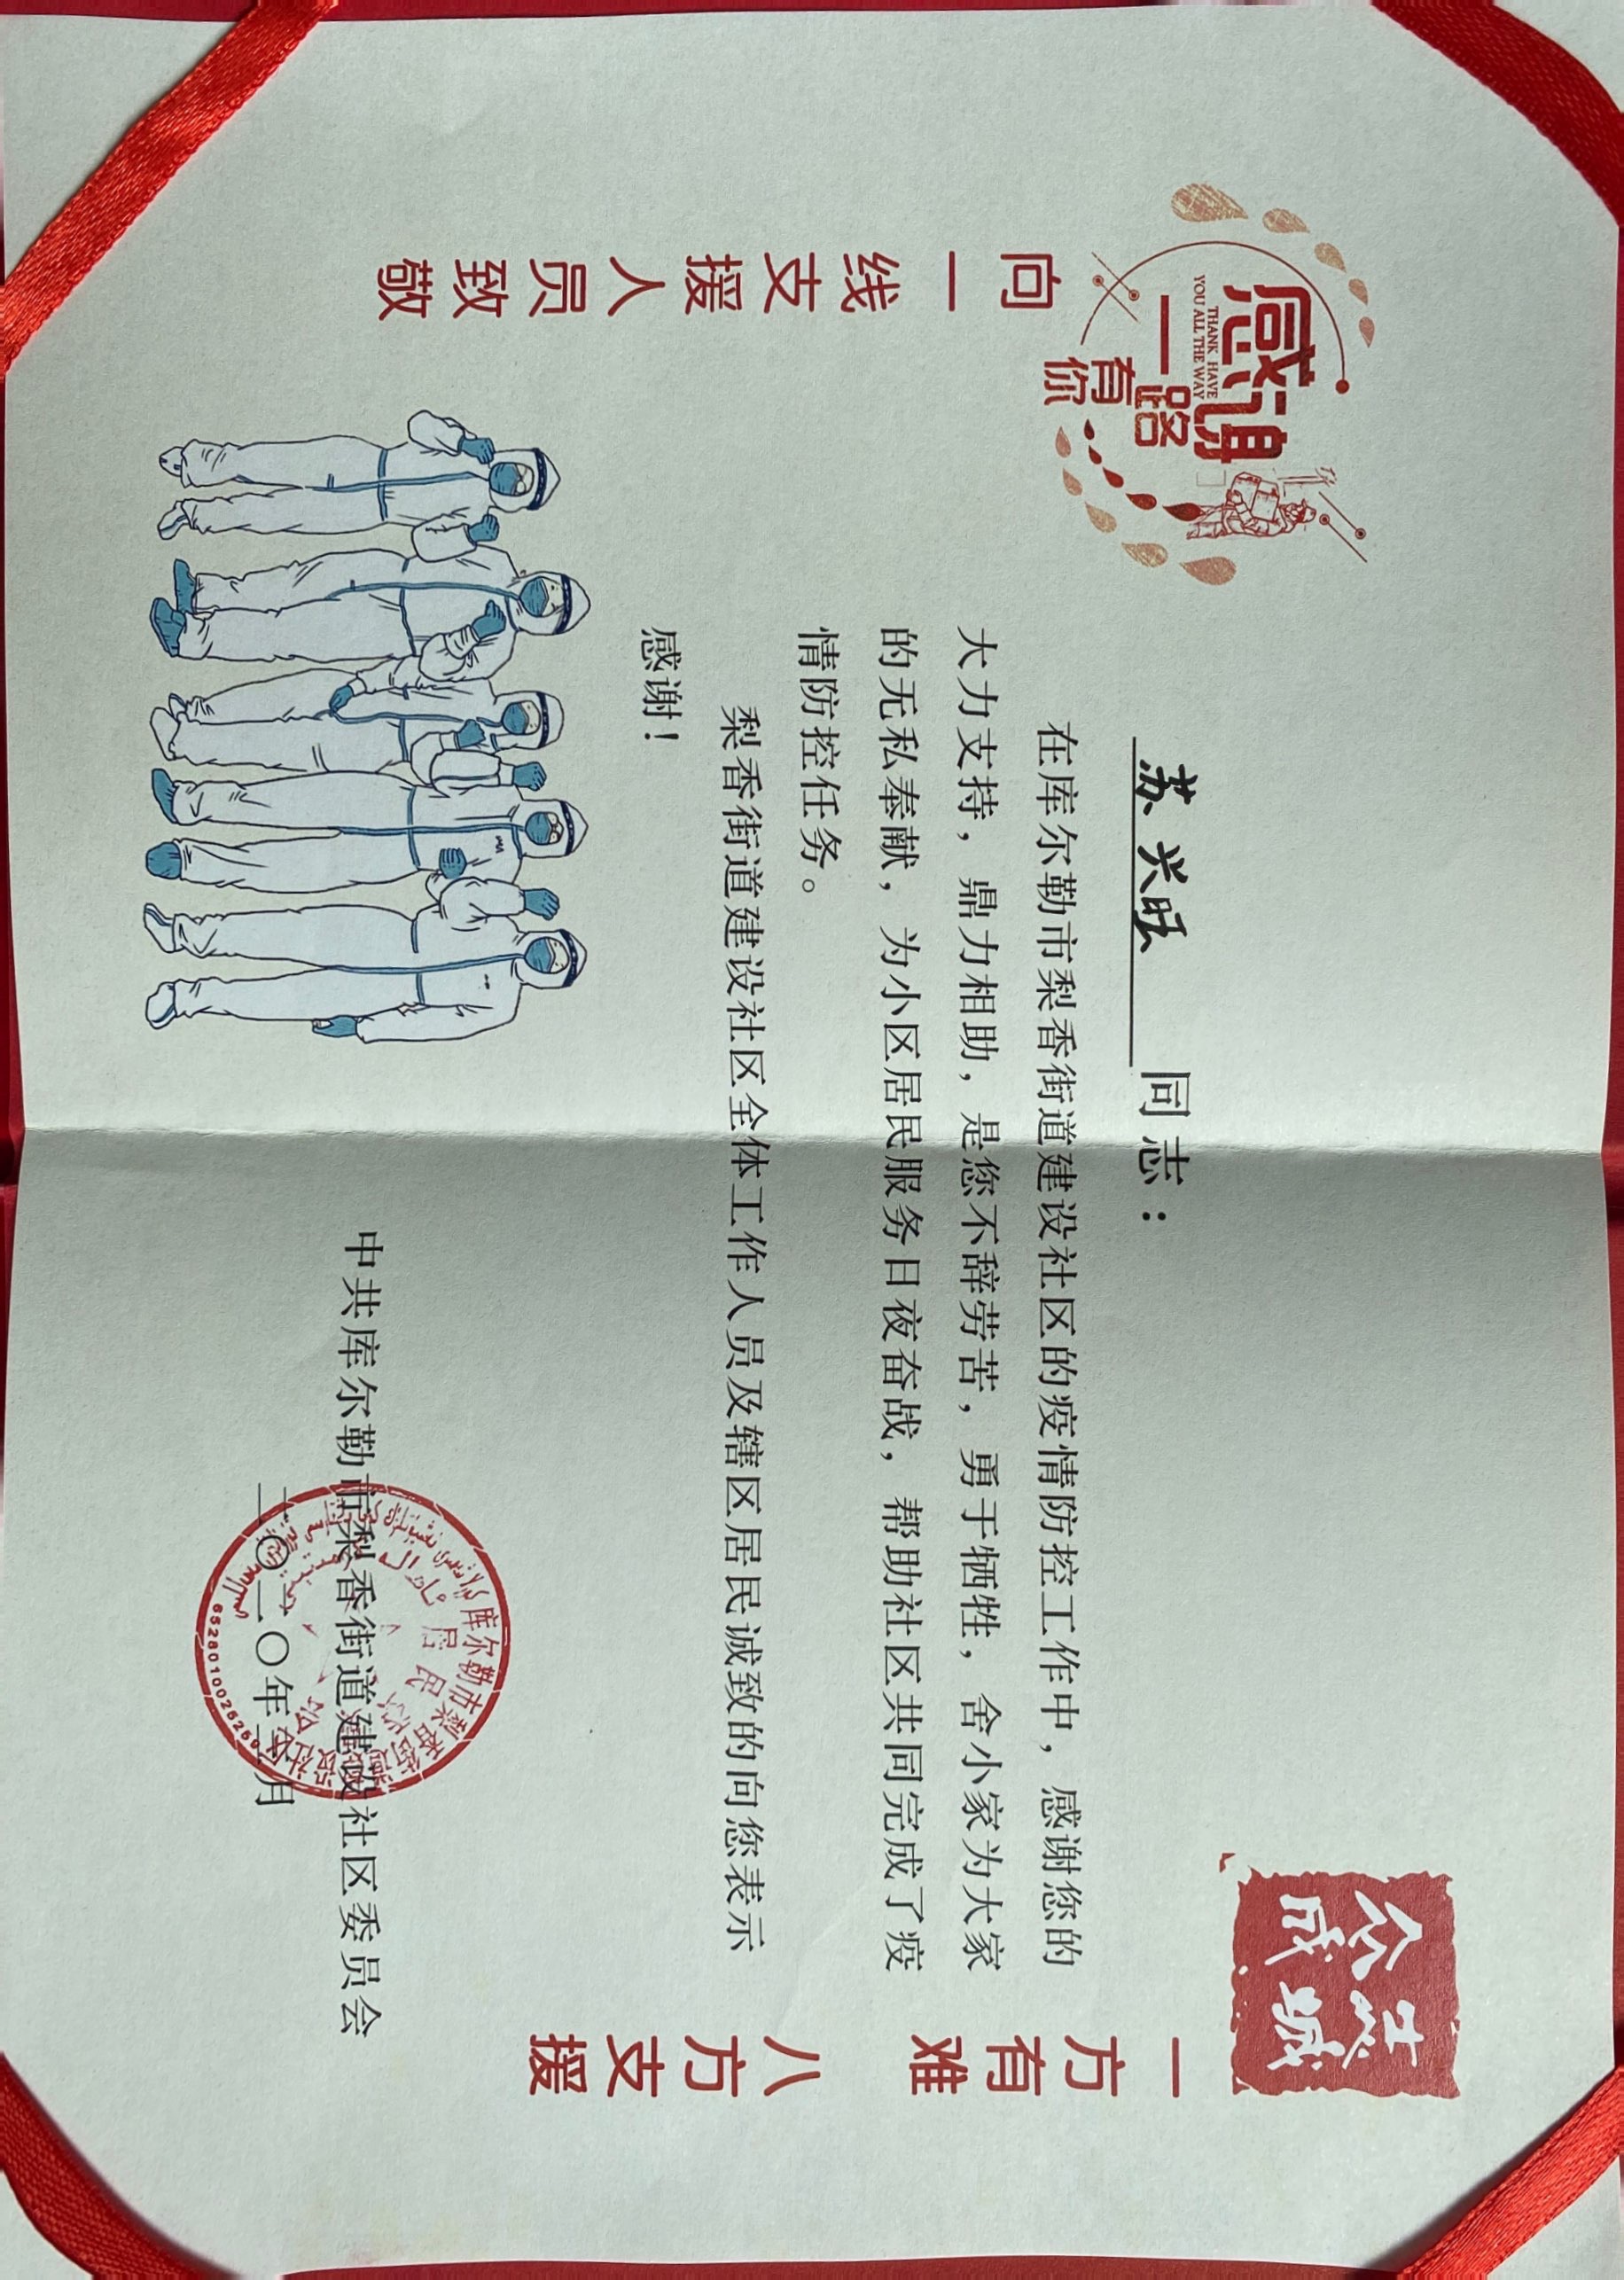 感谢
THANK HAVE
YOU ALL THE WAY
一路
有你
众志
成城
向一线支援人员致敬
一方有难 八方支援
苏兴旺 同志：
在库尔勒市梨香街道建设社区的疫情防控工作中，感谢您的
大力支持，鼎力相助，是您不辞劳苦，勇于牺牲，舍小家为大家
的无私奉献，为小区居民服务日夜奋战，帮助社区共同完成了疫
情防控任务。
梨香街道建设社区全体工作人员及辖区居民诚致的向您表示
感谢！
中共库尔勒市梨香街道建设社区委员会
二〇二〇年 月
库尔勒市梨香街道建设社区
居民